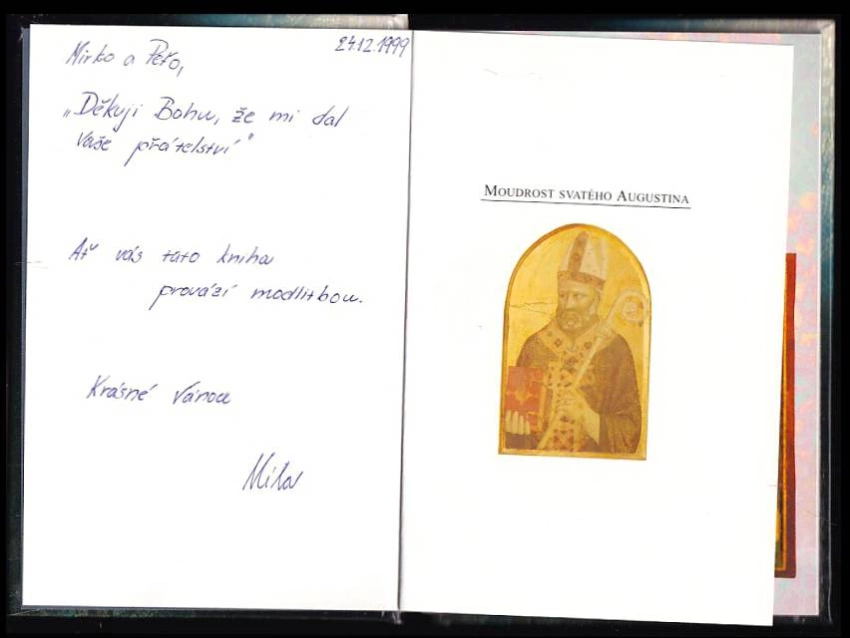 24.12.1999
Mirko a Peťo,
„Děkuji Bohu, že mi dal
Vaše přátelství"
Ať vás tato kniha
provází modlitbou.
Krásné Vánoce
Míla
MOUDROST SVATÉHO AUGUSTINA